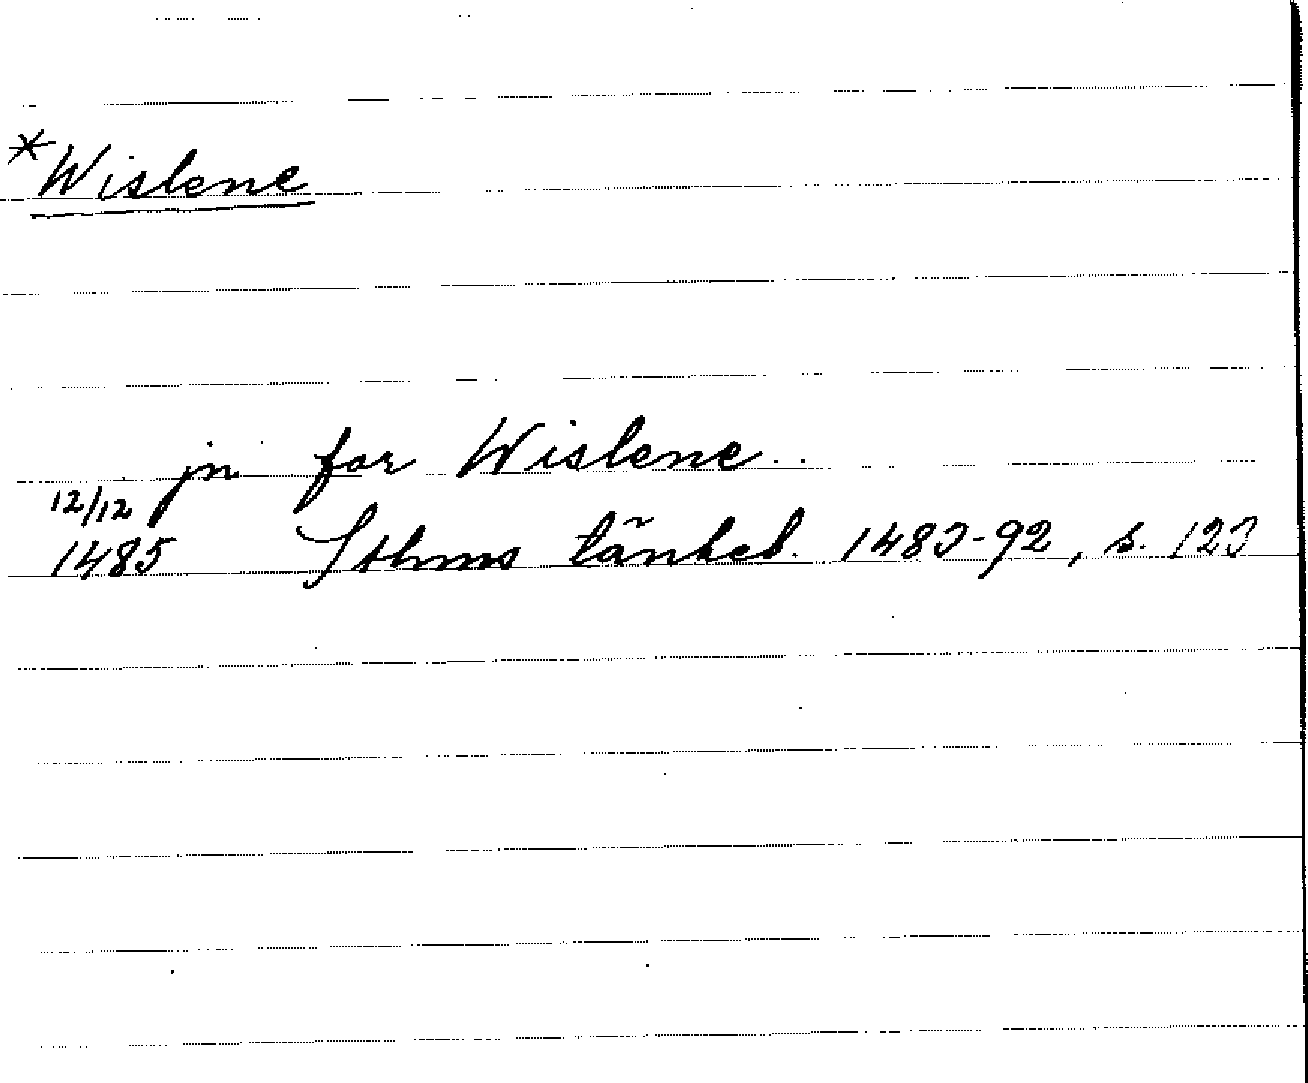 *Wislene
jn for Wislene
12/12
1485 Sthms tänkeb. 1483-92, s. 123